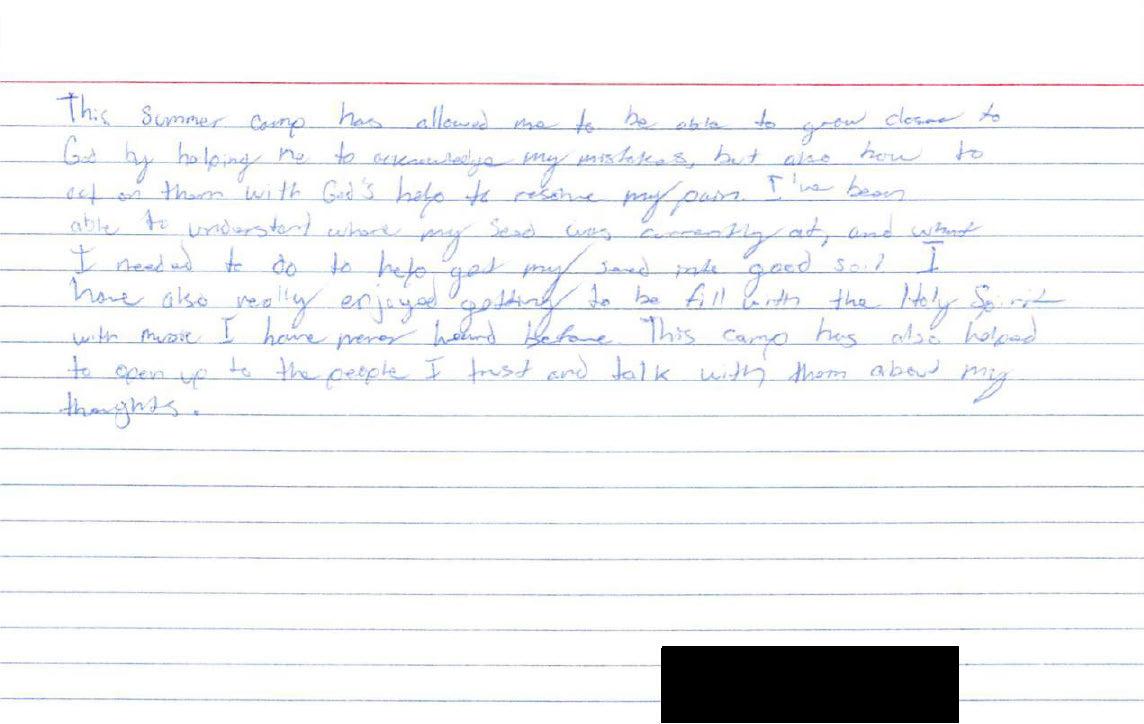 This summer camp has allowed me to be able to grow closer to
God by helping me to acknowledge my mistakes, but also how to
act on them with God's help to resolve my pain. I've been
able to understand where my seed was currently at, and what
I needed to do to help get my seed into good soil I
have also really enjoyed getting to be fill with the Holy Spirit
with music I have never heard before. This camp has also helped
to open up to the people I trust and talk with them about my
thoughts.